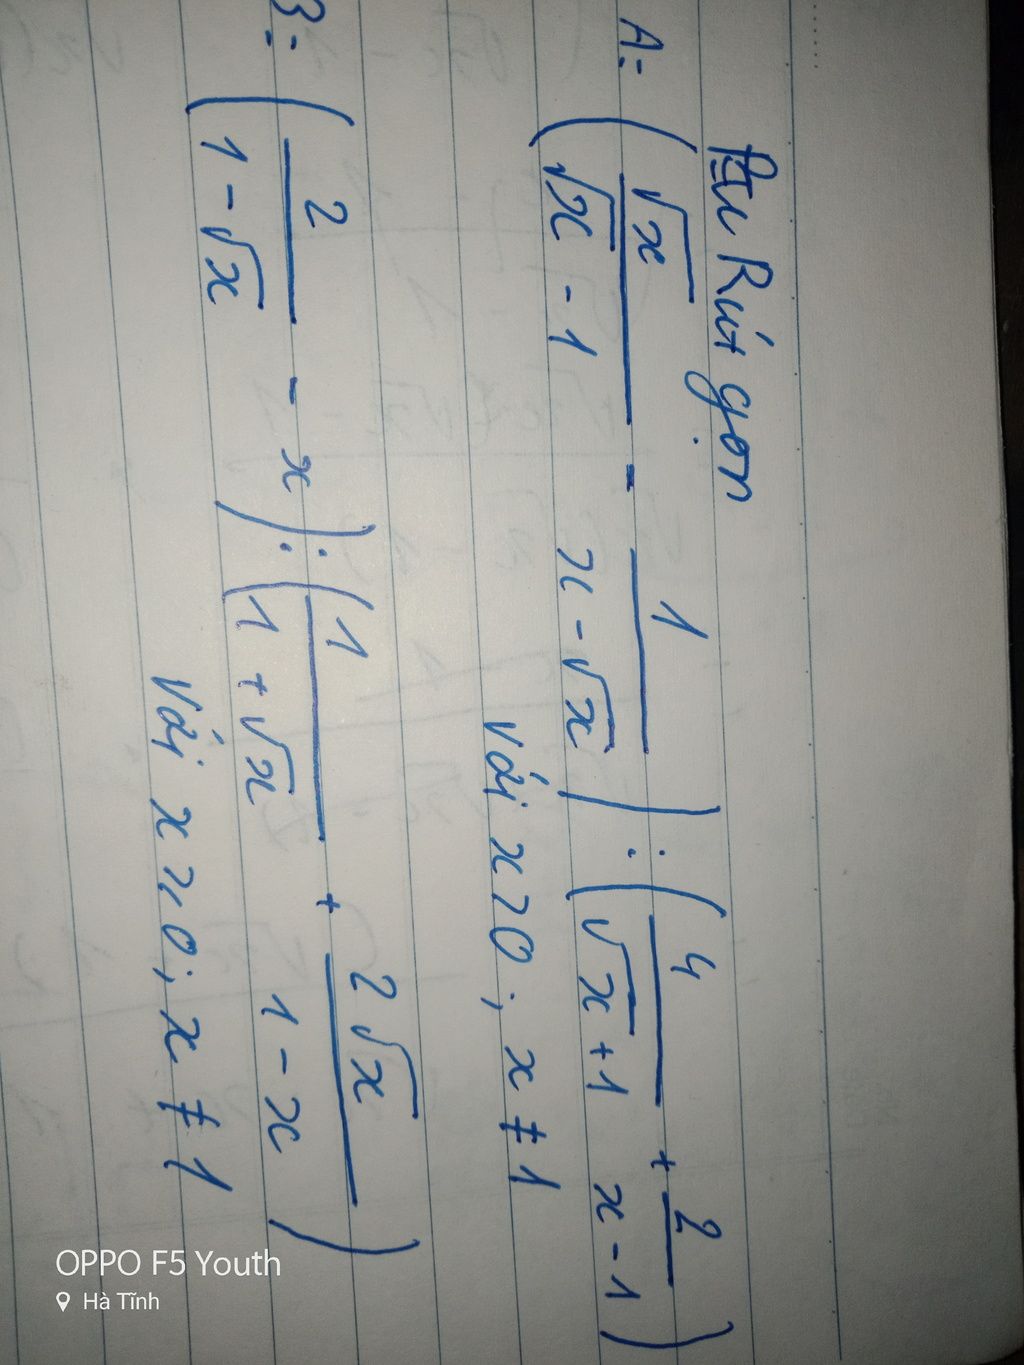 Rút gọn
A = ( √x / (√x - 1) - 1 / (x - √x) ) : ( 4 / (√x + 1) + 2 / (x - 1) )
với x > 0 ; x ≠ 1
B = ( 2 / (1 - √x) - x ) : ( 1 / (1 + √x) + 2√x / (1 - x) )
với x ≥ 0 ; x ≠ 1
OPPO F5 Youth
Hà Tĩnh